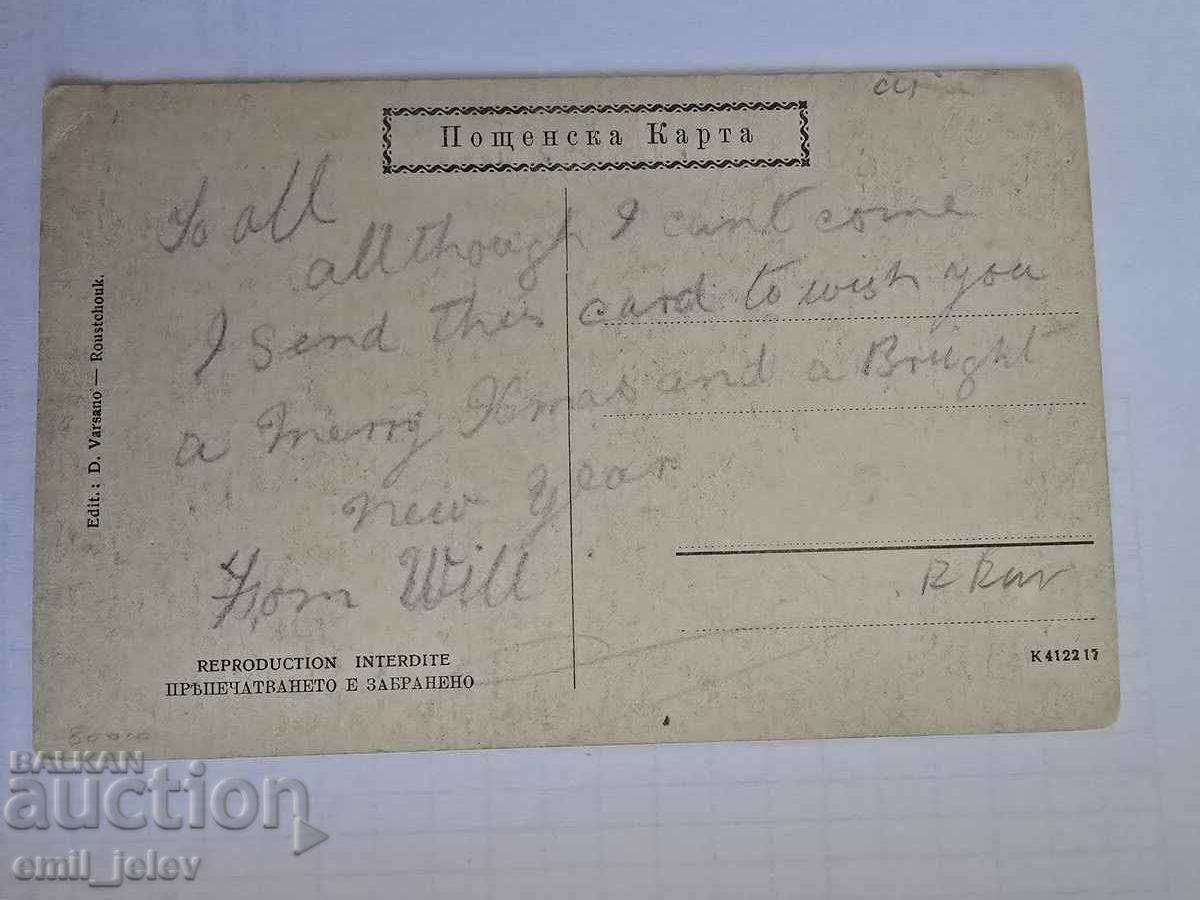 Пощенска Карта
To all
allthough I cant come
I send this card to wish you
a merry Xmas and a Bright
new Year
From Will
Edit.: D. Varsano — Roustchouk.
REPRODUCTION INTERDITE
ПРѢПЕЧАТВАНЕТО Е ЗАБРАНЕНО
K 412217
BALKAN
auction
emil_jelev